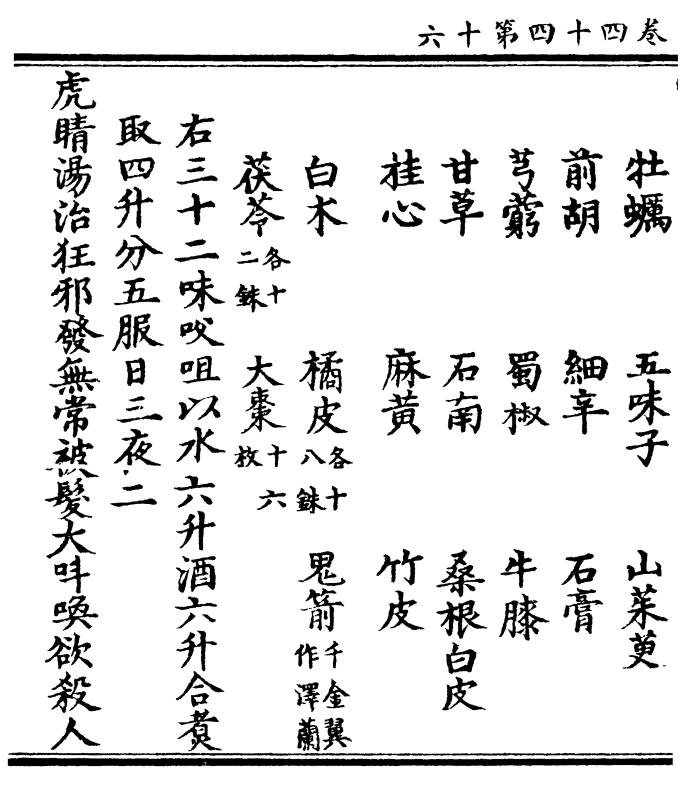 六十第四十四卷
牡蠣　五味子　山茱萸
前胡　細辛　石膏
芎藭　蜀椒　牛膝
甘草　石南　桑根白皮
桂心　麻黄　竹皮
白木　橘皮各十八銖　鬼箭千金翼作澤蘭
茯苓各十二銖　大棗十六枚
右三十二味㕮咀以水六升酒六升合煮
取四升分五服日三夜二
虎睛湯治狂邪發無常被髮大呌喚欲殺人